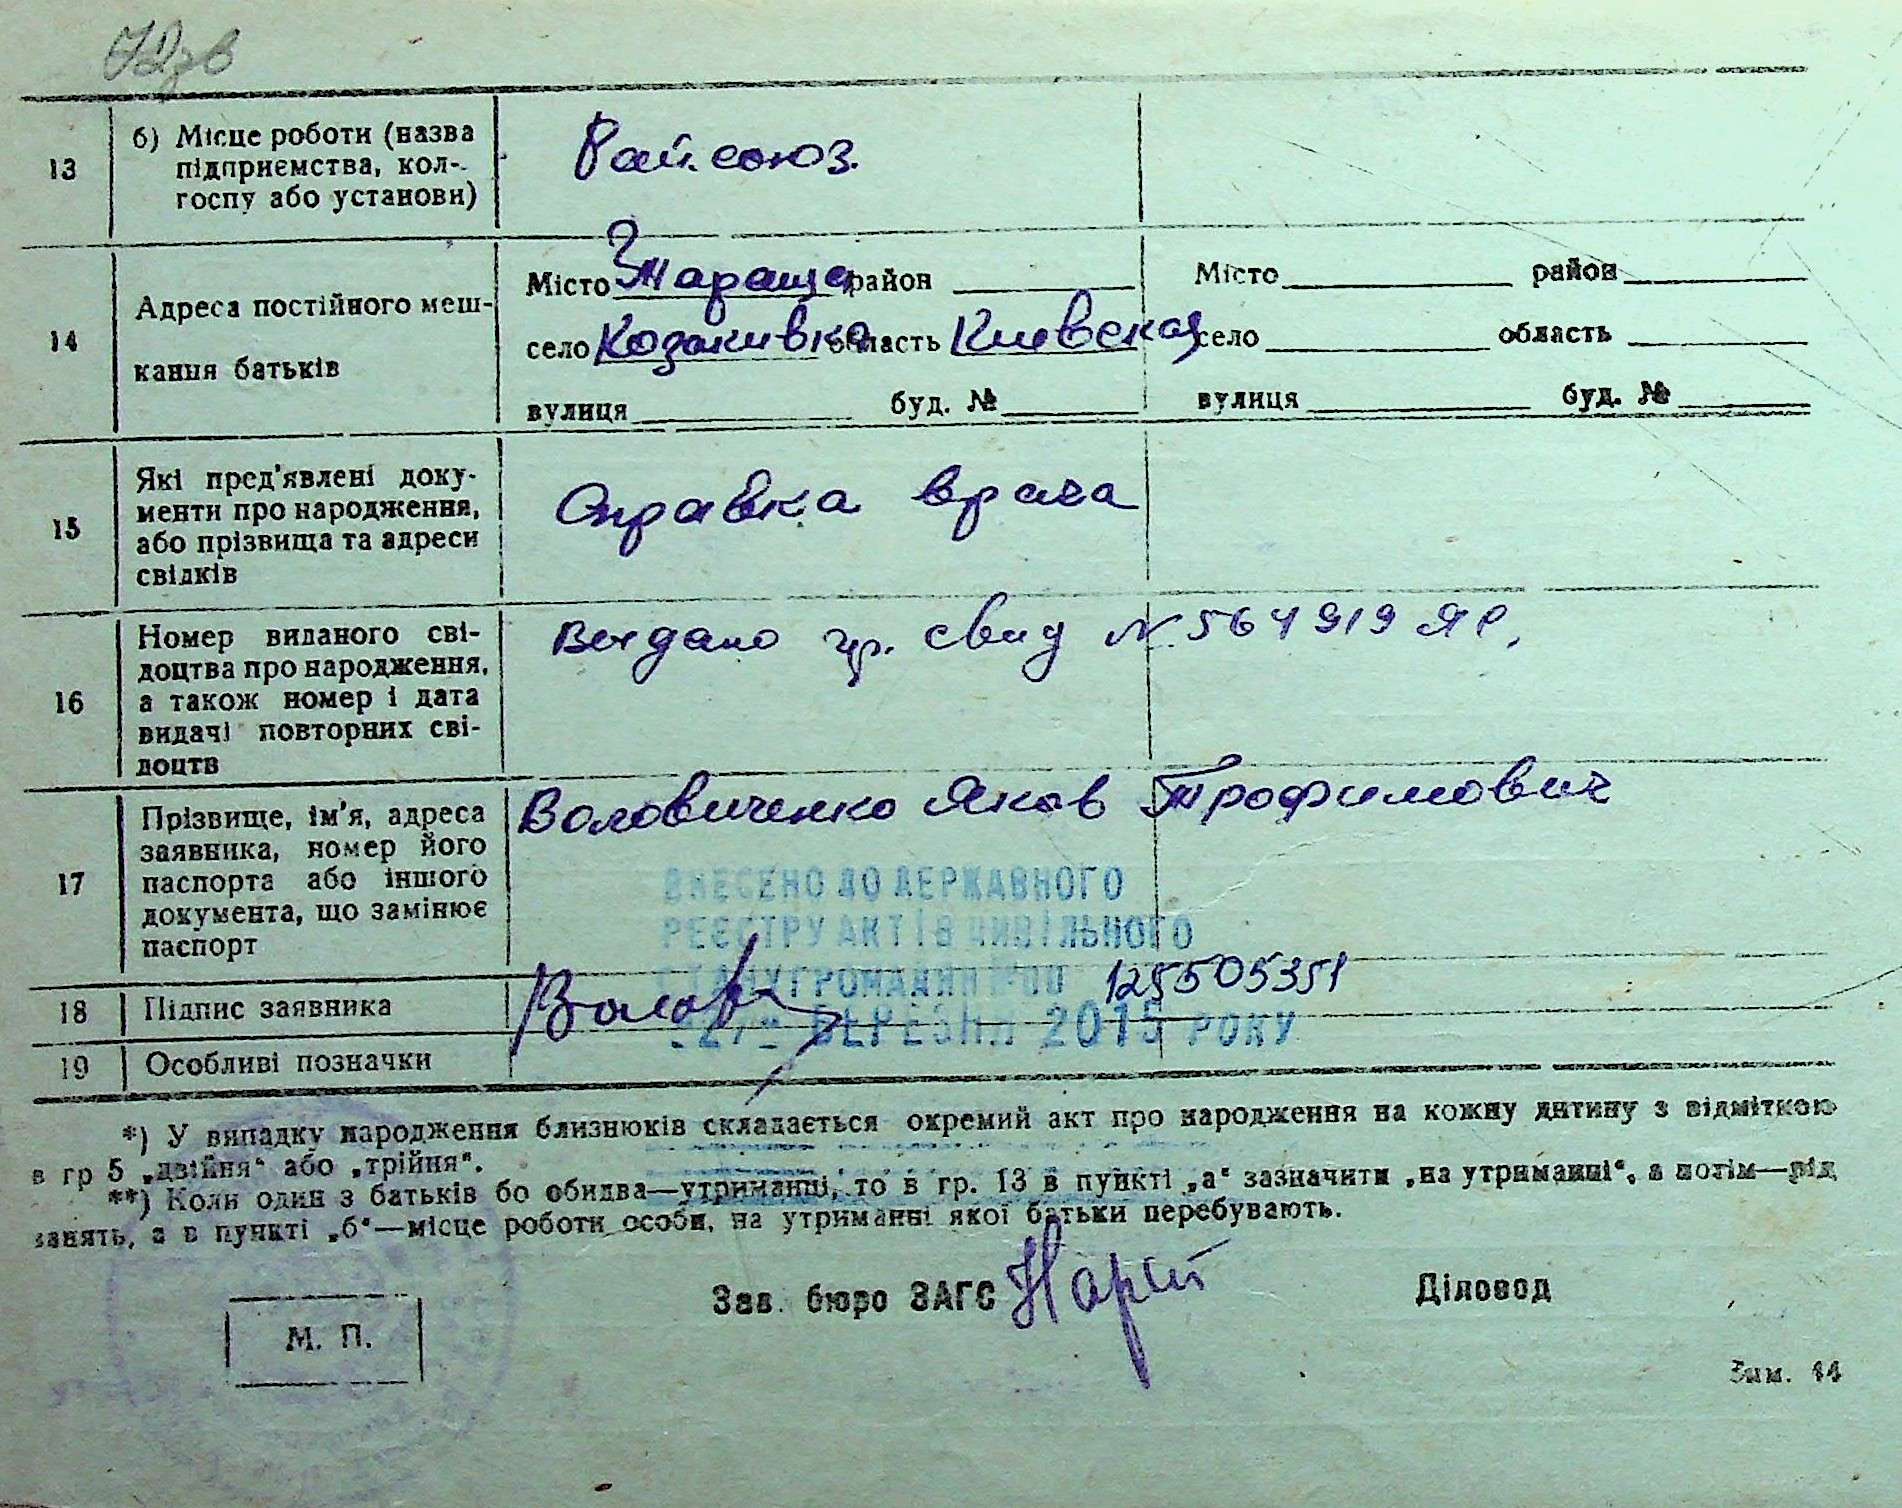 13
б) Місце роботи (назва
підприємства, кол-
госпу або установи)
Райсоюз
14
Адреса постійного меш-
кання батьків
Місто Тараща район
село Козаківка область Киевская
вулиця буд. №
Місто район
село область
вулиця буд. №
15
Які пред'явлені доку-
менти про народження,
або прізвища та адреси
свідків
Справка врача
16
Номер виданого сві-
доцтва про народження,
а також номер і дата
видачі повторних сві-
доцтв
Выдано гр. свид N 564919 ЯР.
17
Прізвище, ім'я, адреса
заявника, номер його
паспорта або іншого
документа, що замінює
паспорт
Воловиченко Яков Трофимович
ВНЕСЕНО ДО ДЕРЖАВНОГО
РЕЄСТРУ АКТІВ ЦИВІЛЬНОГО
СТАНУ ГРОМАДЯН 125505351
БЕРЕЗНЯ 2015 РОКУ
18
Підпис заявника
19
Особливі позначки
*) У випадку народження близнюків складається окремий акт про народження на кожну дитину з відміткою
в гр 5 „двійня“ або „трійня“.
**) Коли один з батьків бо обидва—утриманці, то в гр. 13 в пункті „а“ зазначити „на утриманні“, а потім—рід
занять, а в пункті „б“—місце роботи особи, на утриманні якої батьки перебувають.
Зав. бюро ЗАГС
Діловод
М. П.
Зам. 44